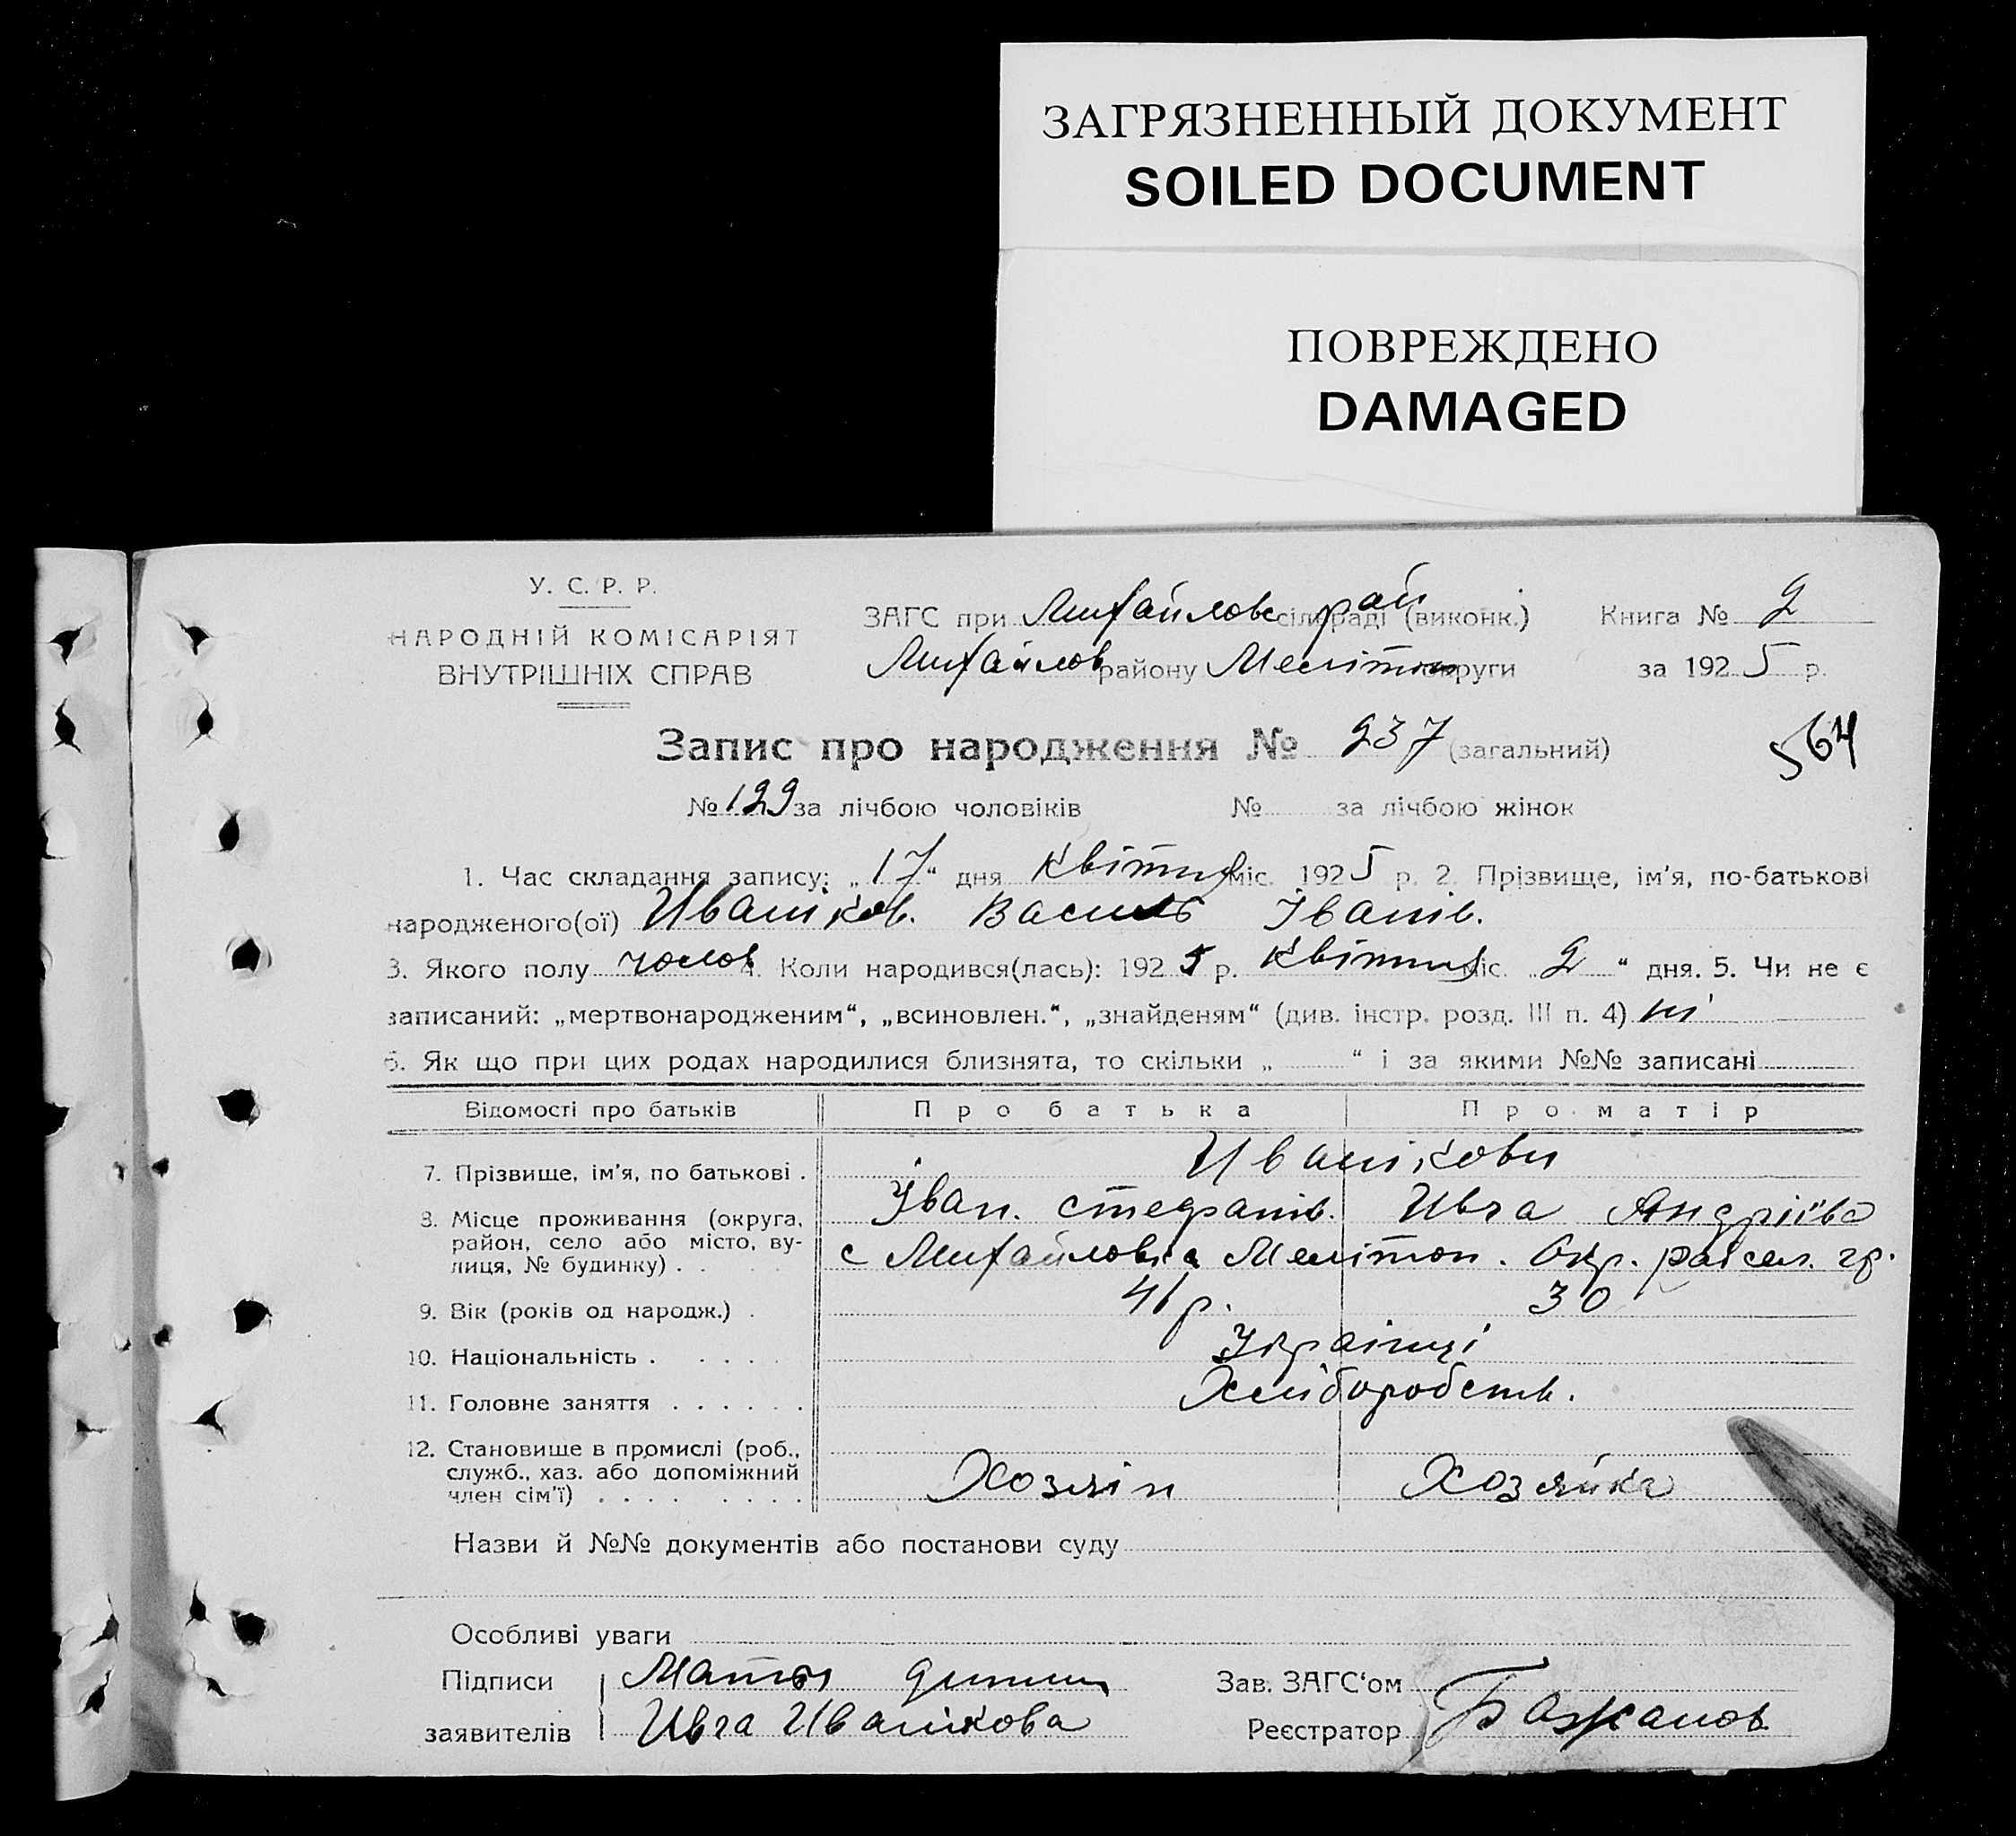 ЗАГРЯЗНЕННЫЙ ДОКУМЕНТ
SOILED DOCUMENT
ПОВРЕЖДЕНО
DAMAGED
У. С. Р. Р.
НАРОДНІЙ КОМІСАРІЯТ
ВНУТРІШНІХ СПРАВ
ЗАГС при Михайловс сільраді рай (виконк.) Книга № 2
Михайлов району Мелітоп округи за 1925 р.
Запис про народження № 237 (загальний)
564
№ 129 за лічбою чоловіків № за лічбою жінок
1. Час складання запису: „17“ дня Квітня міс. 1925 р. 2. Прізвище, ім'я, по-батькові
народженого(ої) Иваніков. Василь Іванів.
3. Якого полу чолов 4. Коли народився(лась): 1925 р. Квітня міс. „2“ дня. 5. Чи не є
записаний: „мертвонародженим“, „всиновлен.“, „знайденям“ (див. інстр. розд. III п. 4) ні
6. Як що при цих родах народилися близнята, то скільки „ “ і за якими №№ записані
Відомості про батьків Про батька Про матір
7. Прізвище, ім'я, по батькові . Иванікови
Іван. Стефанів. Ивга Андріівo
8. Місце проживання (округа,
район, село або місто, ву-
лиця, № будинку) . . с Михайловка Мелітоп. Окр. гр.
9. Вік (років од народж.) . 41 р. 30
10. Національність . . . . . Українці
11. Головне заняття . . . . . . Хліборобств.
12. Становище в промислі (роб.,
служб., хаз. або допоміжний
член сім'ї) . . . . . . . . Хозяін Хозяйка
Назви й №№ документів або постанови суду
Особливі уваги
Підписи Мати дитини Зав. ЗАГС'ом
заявителів Ивга Иванікова Реєстратор Бажанов